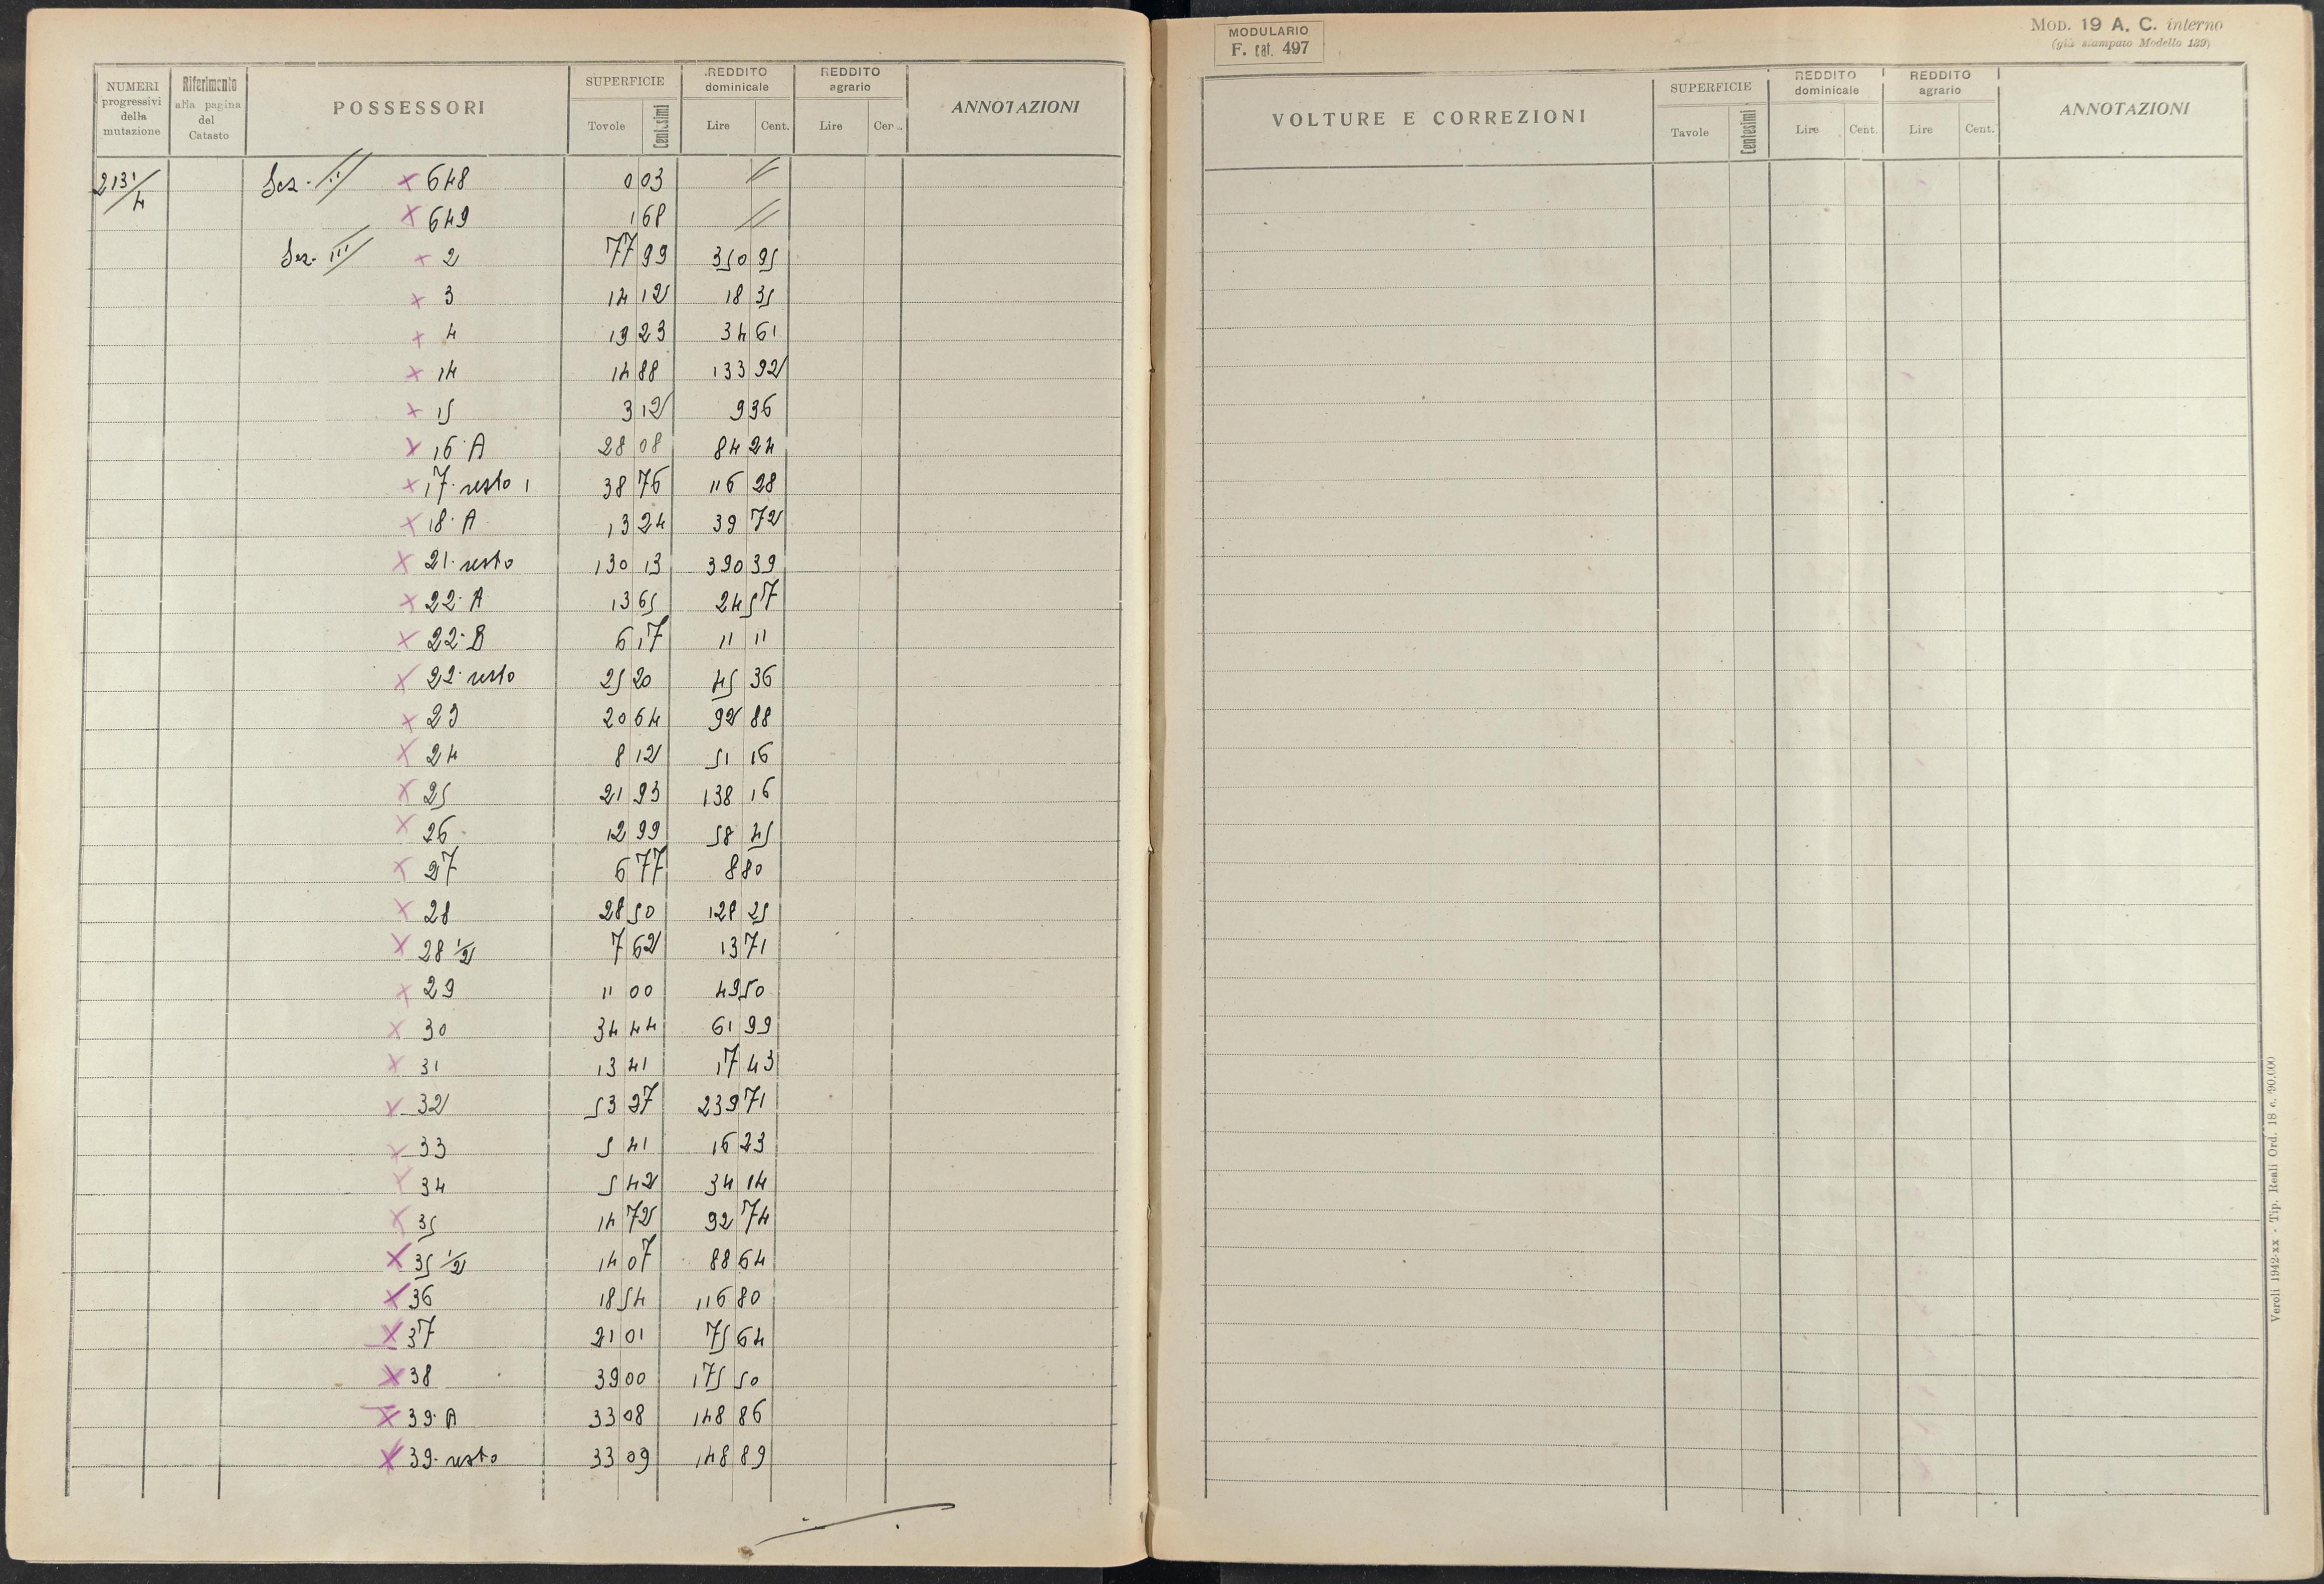 NUMERI progressivi della mutazione | Riferimento alla pagina del Catasto | POSSESSORI | SUPERFICIE Tovole Centesimi | REDDITO dominicale Lire Cent. | REDDITO agrario Lire Cen.. | ANNOTAZIONI
2131/4 Sez. II × 648 0 03 //
× 649 1 68 //
Sez. III × 2 77 99 350 95
× 3 14 12 18 35
× 4 19 23 34 61
× 14 14 88 133 92
× 15 3 12 9 36
× 16 A 28 08 84 24
× 17 resto 1 38 76 116 28
× 18 A 13 24 39 72
× 21 resto 130 13 390 39
× 22 A 13 65 24 57
× 22 B 6 17 11 11
× 22 resto 25 20 45 36
× 23 20 64 92 88
× 24 8 12 51 16
× 25 21 93 138 16
× 26 12 99 58 45
× 27 6 77 8 80
× 28 28 50 128 25
× 28 1/2 7 62 13 71
× 29 11 00 49 50
× 30 34 44 61 99
× 31 13 41 17 43
× 32 53 27 239 71
× 33 5 41 16 23
× 34 5 42 34 14
× 35 14 72 92 74
× 35 1/2 14 07 88 64
× 36 18 54 116 80
× 37 21 01 75 64
× 38 39 00 175 50
× 39 A 33 08 148 86
× 39 resto 33 09 148 89
MODULARIO
F. cat. 497
MOD. 19 A. C. interno
(già stampato Modello 189)
VOLTURE E CORREZIONI | SUPERFICIE Tavole Centesimi | REDDITO dominicale Lire Cent. | REDDITO agrario Lire Cent. | ANNOTAZIONI
Veroli 1942-xx - Tip. Reali Ord. 18 c. 90.000